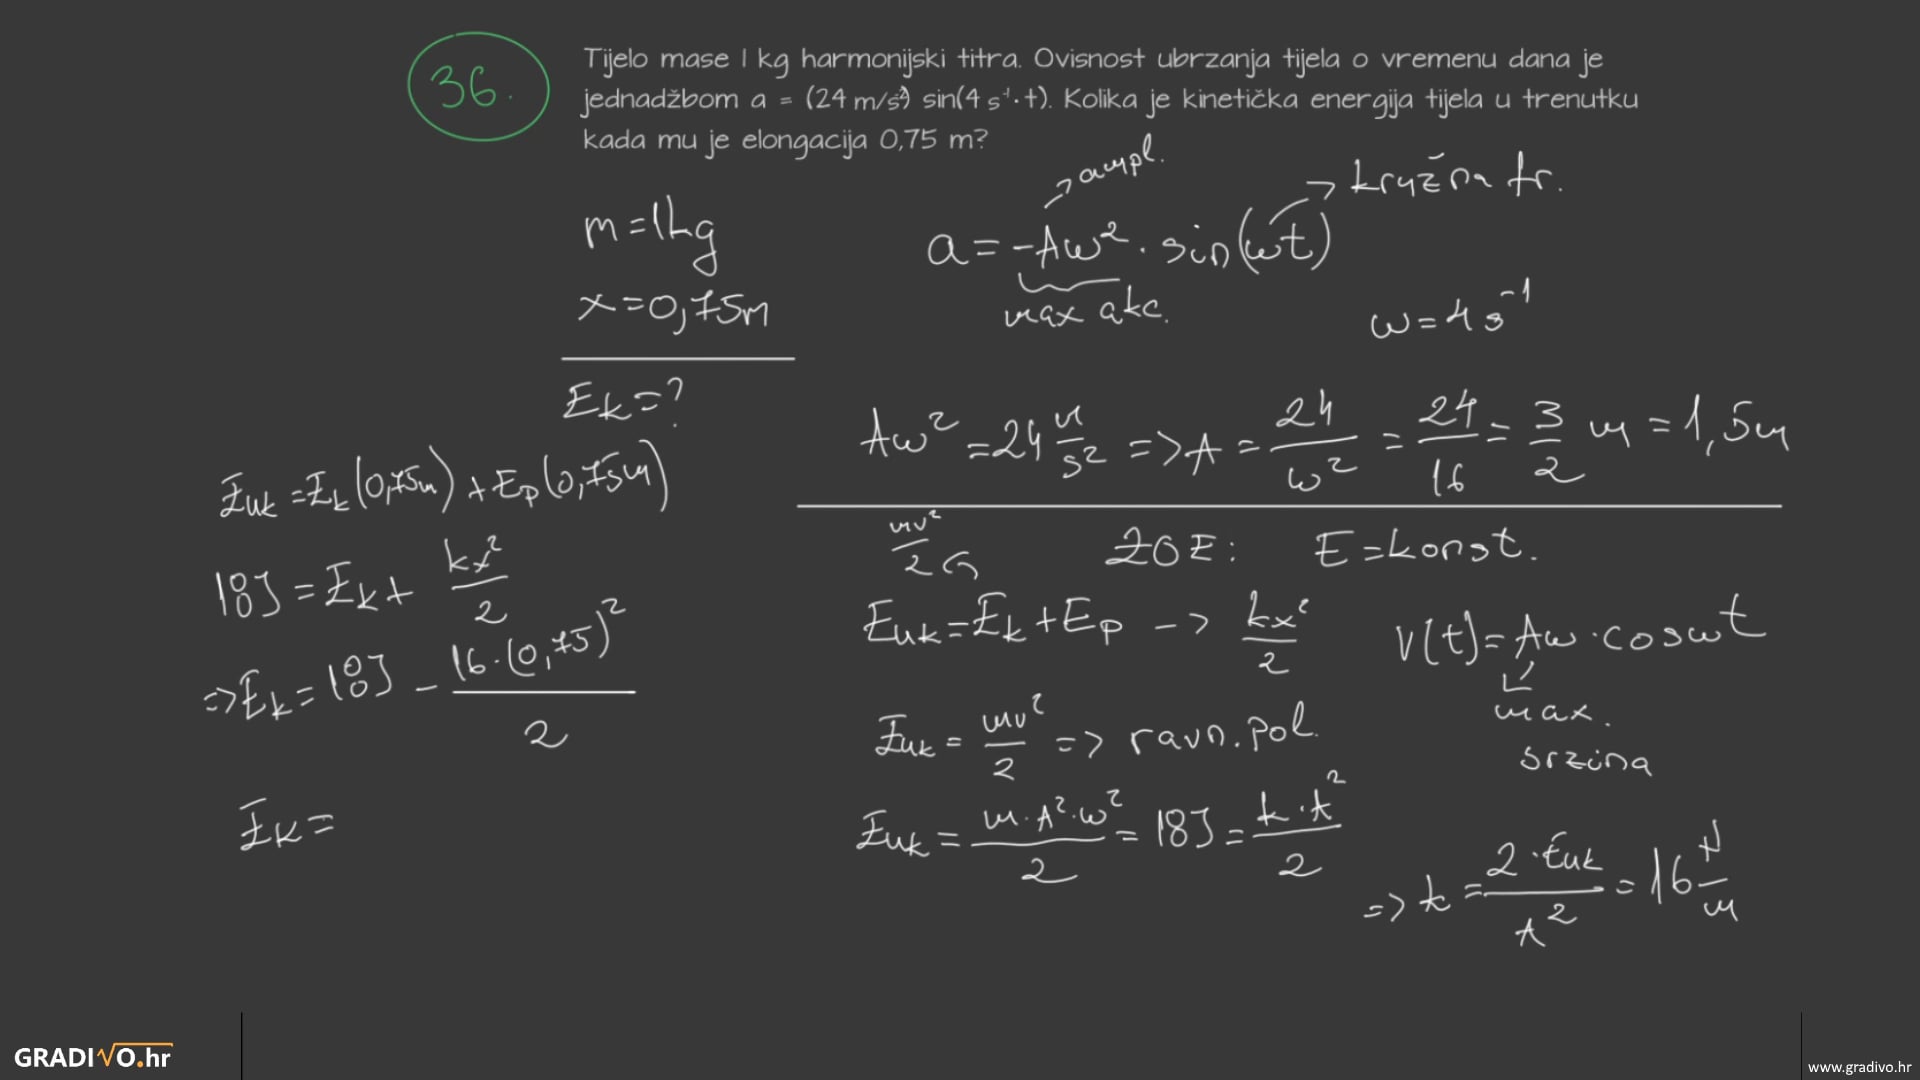 36.
Tijelo mase 1 kg harmonijski titra. Ovisnost ubrzanja tijela o vremenu dana je
jednadžbom a = (24 m/s²) sin(4 s⁻¹·t). Kolika je kinetička energija tijela u trenutku
kada mu je elongacija 0,75 m?
m=1kg
x=0,75m
Ek=?
→ ampl.
→ kružna fr.
a=-Aω²·sin(ωt)
max akc.
ω=4s⁻¹
Aω²=24 m/s² => A = 24/ω² = 24/16 = 3/2 m = 1,5m
Euk=Ek(0,75m)+Ep(0,75m)
18J=Ek+ kx²/2
=>Ek=18J - 16·(0,75)²/2
Ek=
mv²/2
ZOE: E=konst.
Euk=Ek+Ep -> kx²/2
v(t)=Aω·cosωt
max.
brzina
Euk= mv²/2 => ravn.pol.
Euk= m·A²·ω²/2 = 18J = k·A²/2
=> k = 2·Euk/A² = 16 N/m
GRADIVO.hr
www.gradivo.hr